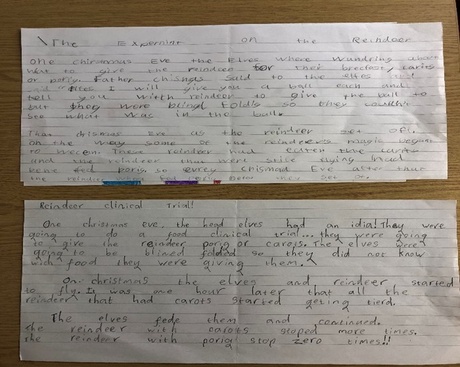 The Experniat on the Reindeer
One chirstmas Eve the Elves where wundring about
what to give the reindeer for their brecfast, carits
or porig. Father chismas said to the elfes
I will give you a ball each and
tell you with reindeer to give the ball to
but they were blind folds so they couldn't
see what was in the ball.
That chrismas Eve as the reindeer set off.
on the way some of the reindeers magic began
to
and the reindeer that were still flying had
porig so evrey chismad Eve after that
the reindeer
Reindeer clinical Trial!
One christmas eve, the head elves had an idia! They were
going to do a food clinical trial... they were going
to give the reindeer porig or carots. The elves were
going to be blined folded so they did not know
wich food they were giving them.
On christmas the elves and reindeer started
to fly. It was one hour later that all the
reindeer that had carots started geting tierd.
The elves fede them and continued.
the reindeer with carots stoped more times.
the reindeer with porig stop zero times!!